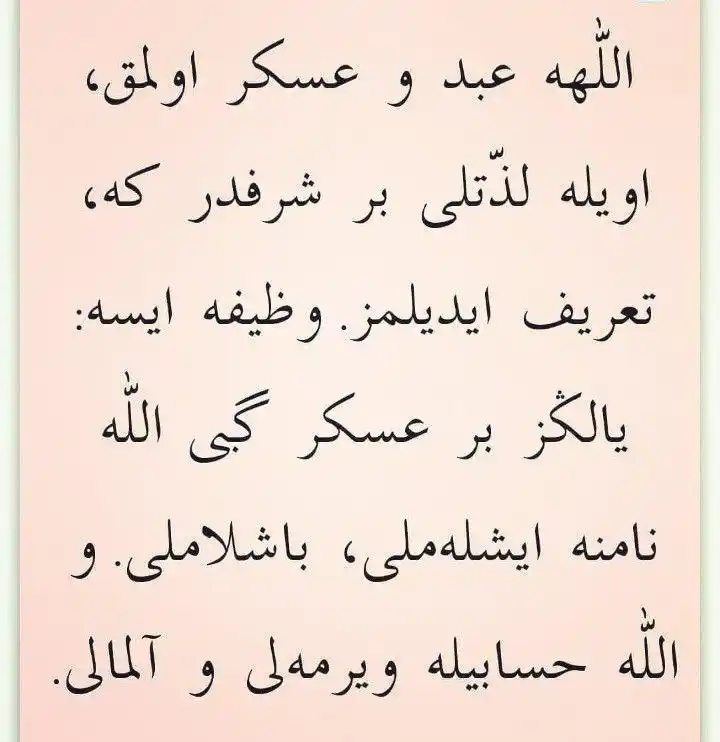 اللّٰهه عبد و عسكر اولمق،
اويله لذّتلی بر شرفدر كه،
تعريف ايديلمز. وظيفه ايسه:
يالڭز بر عسكر گبی اللّٰه
نامنه ايشله‌ملی، باشلاملی. و
اللّٰه حسابيله ويرمه‌لی و آلمالی.